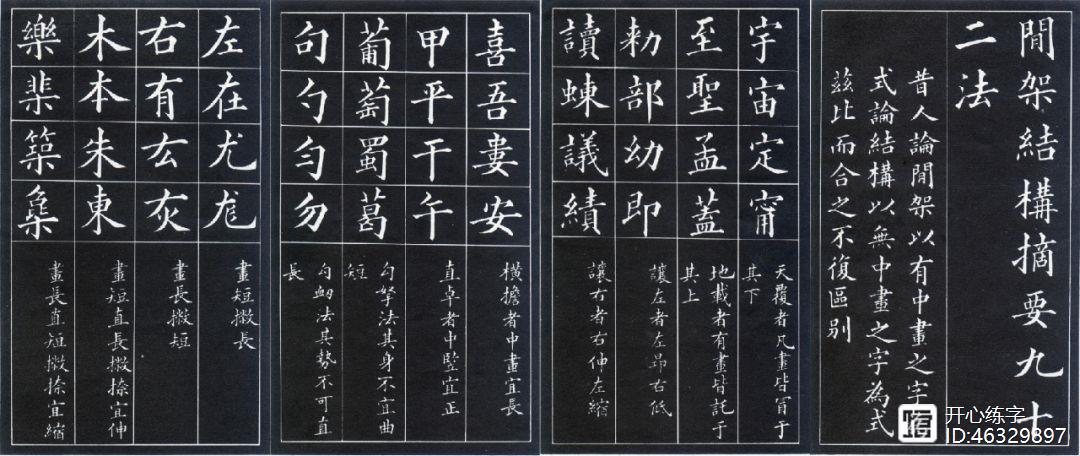 閒架結構摘要九十
二法
昔人論閒架以有中畫之字
式論結構以無中畫之字為式
茲比而合之不復區別
宇宙定甯
天覆者凡畫皆冒于
其下
至聖孟蓋
地載者有畫皆託于
其上
勑部幼即
讓左者左昂右低
讀蝀議績
讓右者右伸左縮
喜吾婁安
橫擔者中畫宜長
甲平干午
直卓者中竪宜正
葡萄蜀葛
勾拏法其身不宜曲
短
句勺勻勿
勾衂法其勢不可直
長
左在尤尨
畫短撇長
右有厷灰
畫長撇短
木本朱東
畫短直長撇捺宜伸
樂棐築
畫長直短撇捺宜縮
开心练字
ID:46329897